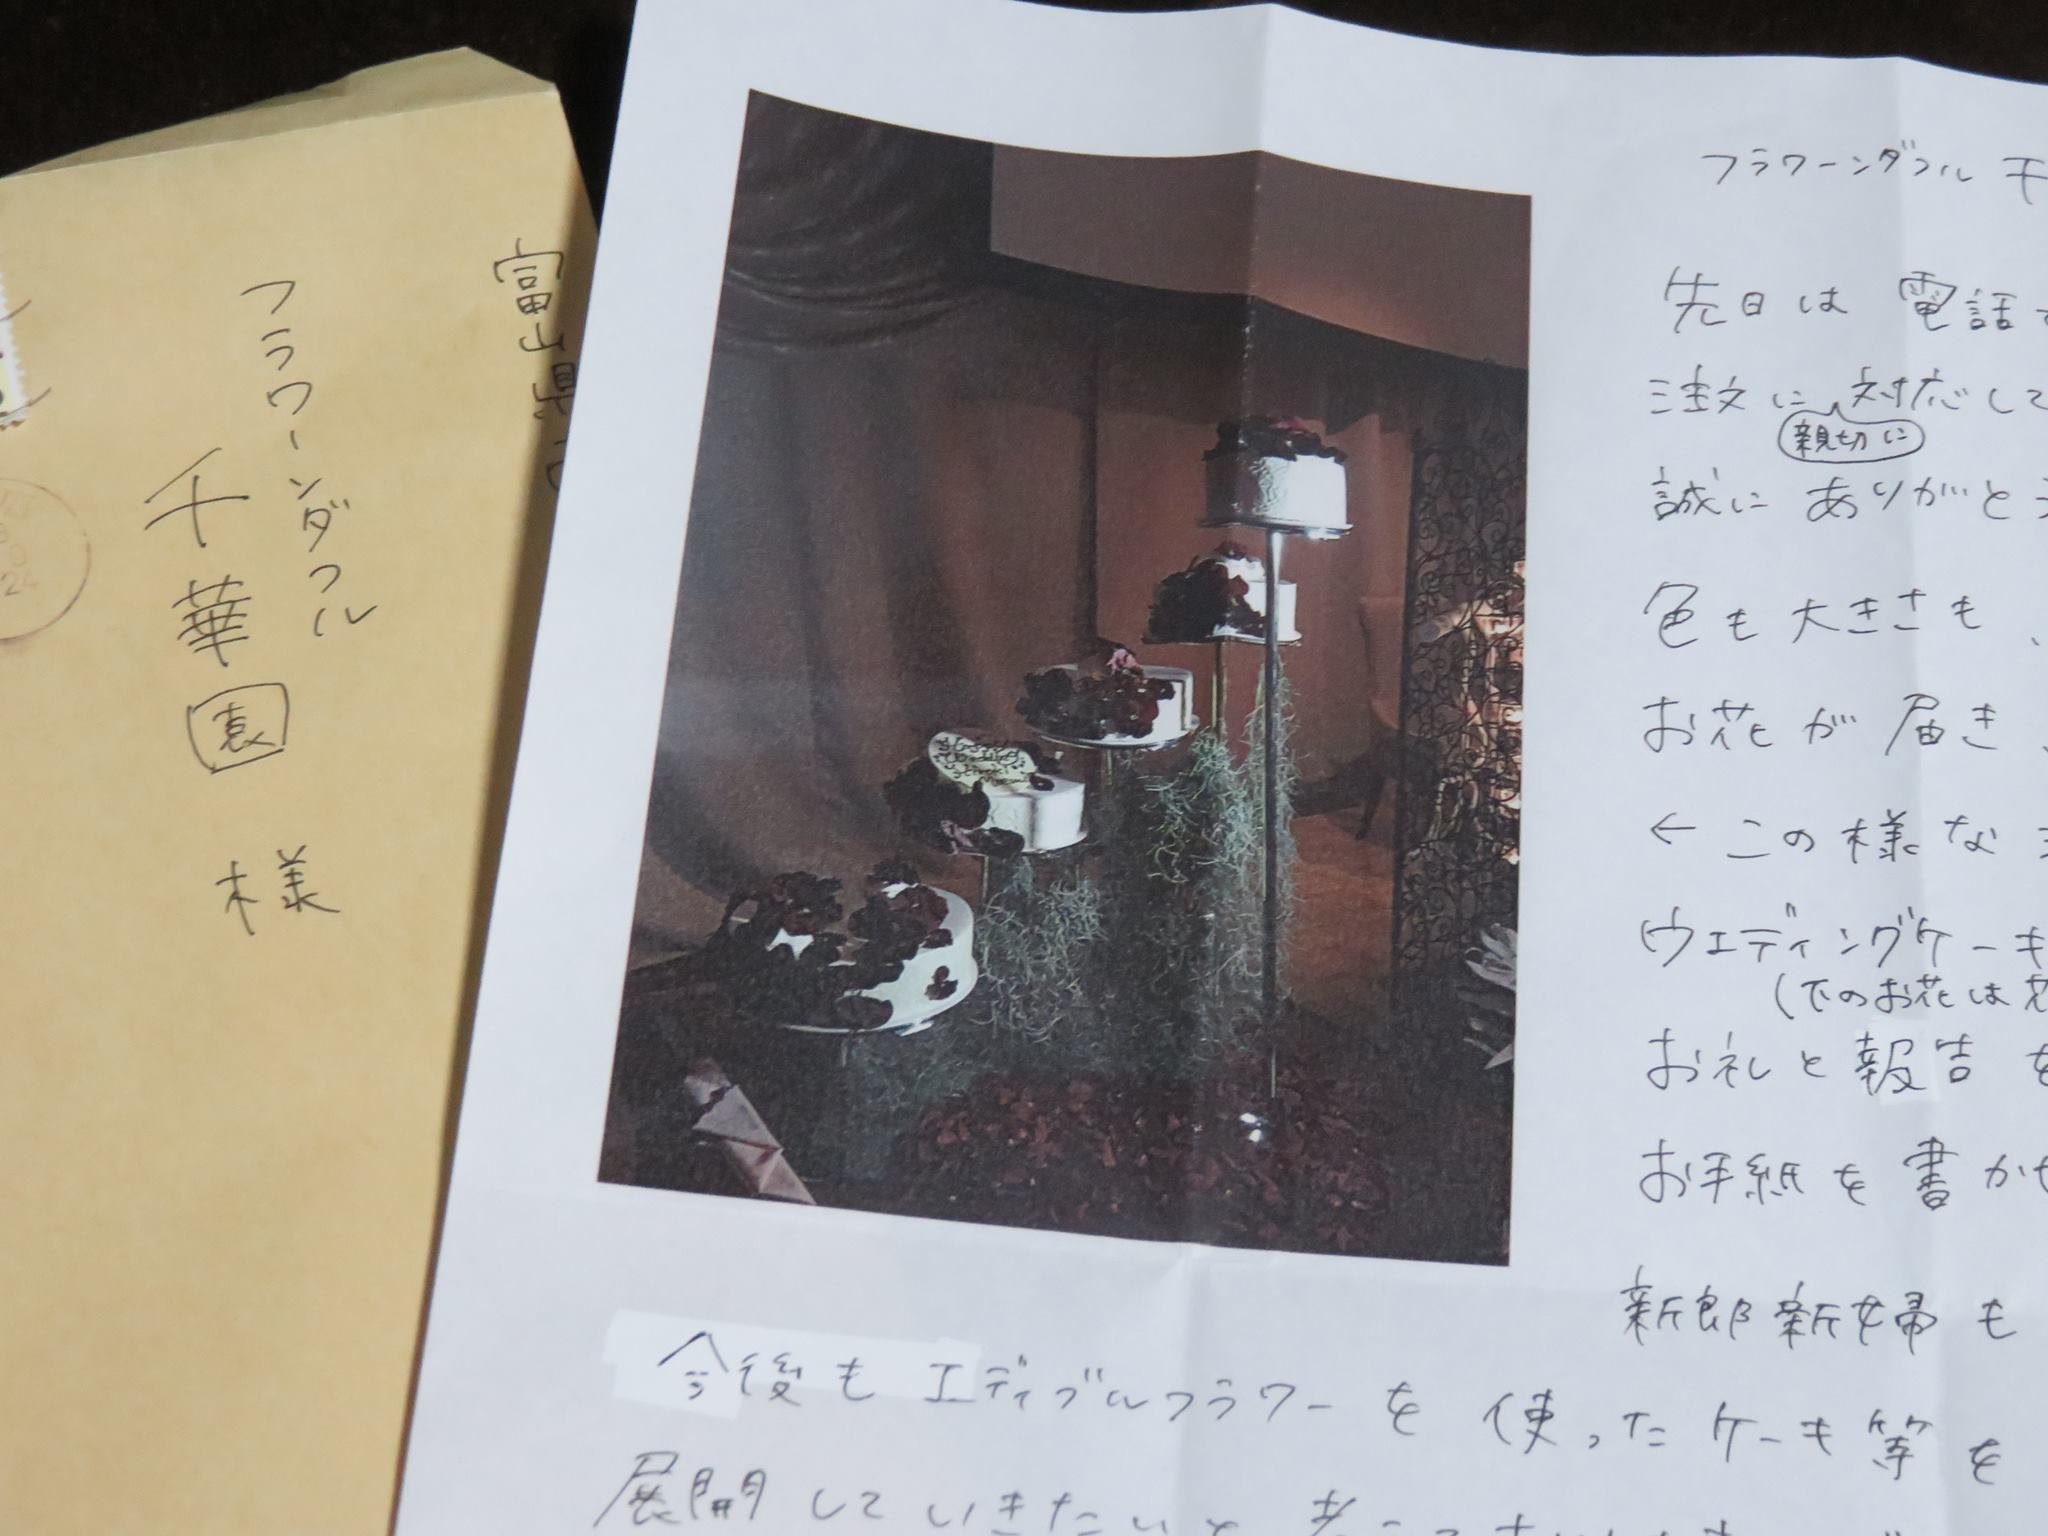 富山県
フラワーンダフル
千華園 様
フラワーンダフル 千
先日は 電話
注文に 対応して
親切に
誠に ありがとう
色も 大きさも、
お花が 届き、
← この様な
ウエディングケーキ
(下のお花は
お礼と報告を
お手紙を書かせ
新郎新婦も
今後も エディブルフラワーを 使ったケーキ等を
展開していきたいと